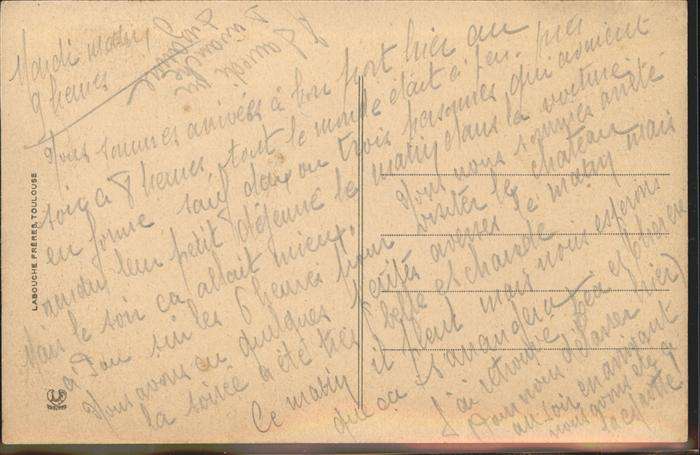 Mardi matin
9 heures
Nous sommes arrivées à bon port hier au
soir à 8 heures, tout le monde était à peu près
en forme sauf deux ou trois personnes qui avaient
rendu leur petit déjeuner le matin dans la voiture
Mais le soir ça allait mieux. Nous nous sommes arrêté
à Pau sur les 6 heures pour visiter le château
Nous avons eu quelques averses le matin mais
la soirée a été très belle et chaude
Ce matin il pleut mais nous espérons
que ça s'arrangera
J'ai retrouvé
Pour nous délasser hier
au soir en arrivant
nous avons été à
LABOUCHE FRÈRES, TOULOUSE